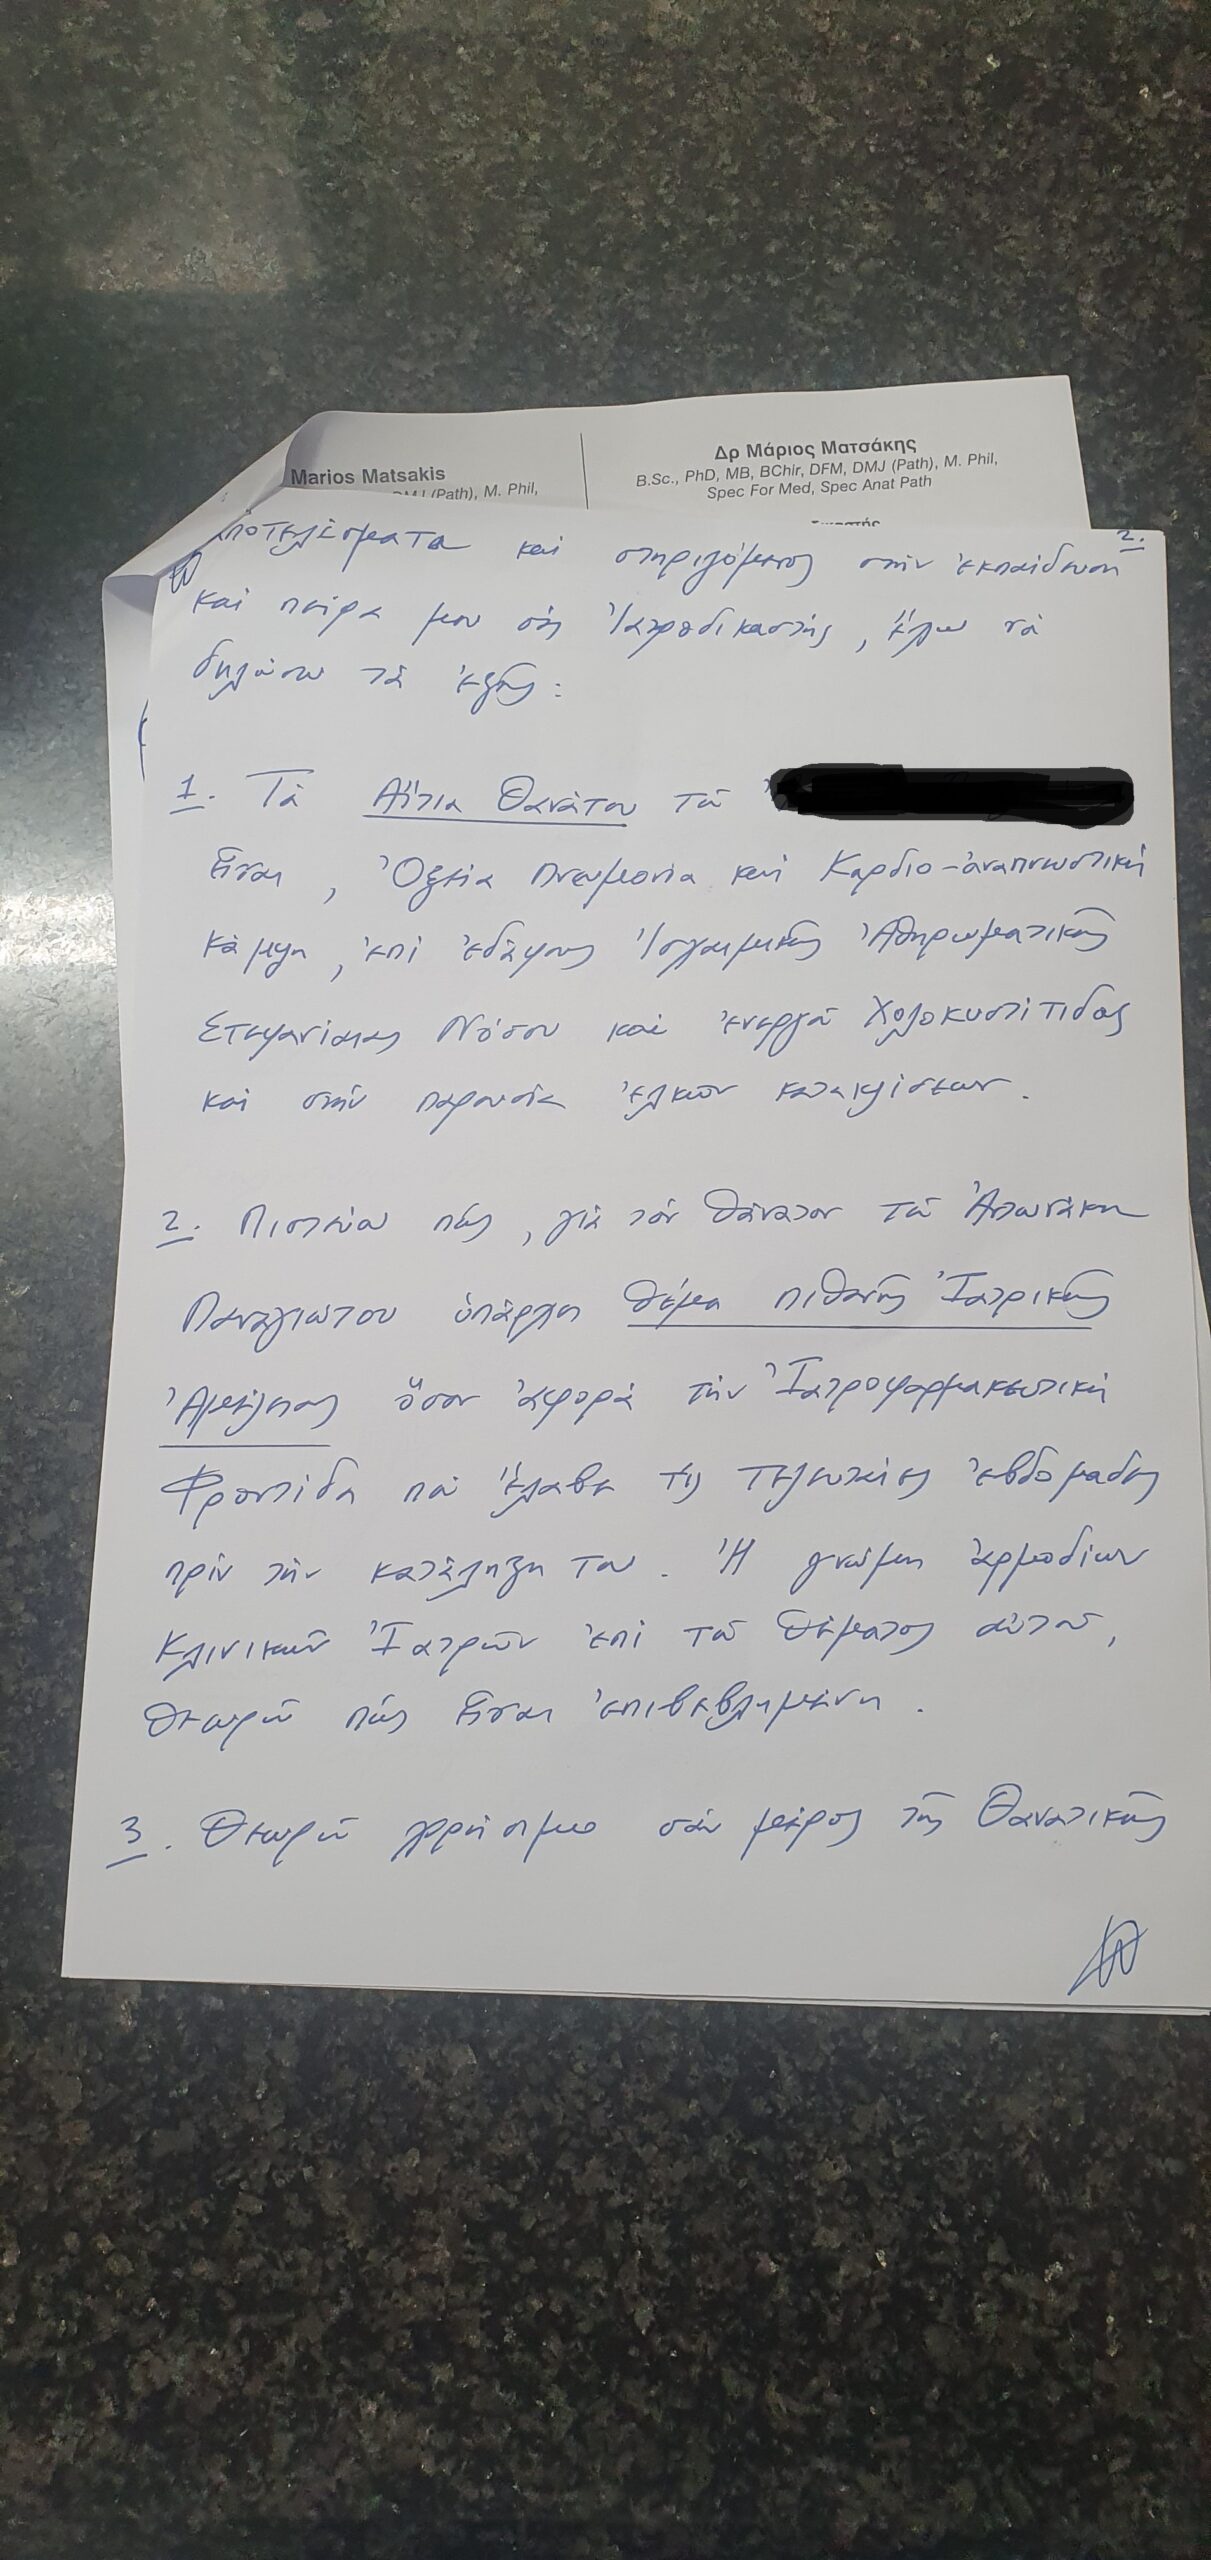 Marios Matsakis
DMJ (Path), M. Phil,
Δρ Μάριος Ματσάκης
B.Sc., PhD, MB, BChir, DFM, DMJ (Path), M. Phil,
Spec For Med, Spec Anat Path
2.
ποτελέσματα καί στηριζόμενος στήν ἐκπαίδευση
καί πείρα μου σάν Ἰατροδικαστής, ἔχω νά
δηλώσω τά ἑξῆς:
1. Τά Αἴτια Θανάτου τοῦ
Εἶναι, Ὀξεία Πνευμονία καί Καρδιο-ἀναπνευστική
κάμψη, ἐπί ἐδάφους Ἰσχαιμικῆς Ἀθηρωματικῆς
Στεφανιαίας Νόσου καί ἐνεργοῦ Χολοκυστίτιδας
καί στήν παρουσία ἑλκῶν κατακλίσεων.
2. Πιστεύω πώς, γιά τόν θάνατον τοῦ Ἀντωνάκη
Παναγιώτου ὑπάρχει θέμα πιθανῆς Ἰατρικῆς
Ἀμέλειας ὅσον ἀφορά τήν Ἰατροφαρμακευτική
Φροντίδα πού ἔλαβε τίς τελευταίες ἑβδομάδες
πρίν τήν κατάληξή του. Ἡ γνώμη ἁρμοδίων
Κλινικῶν Ἰατρῶν ἐπί τοῦ θέματος αὐτοῦ,
θεωρῶ πώς εἶναι ἐπιβεβλημένη.
3. Θεωρῶ χρήσιμο σάν μέρος τῆς Θανατικῆς